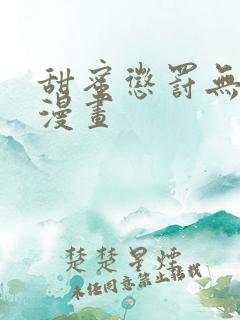 甜蜜懲罰無
漫畫
楚楚星煙
未经同意禁止转载